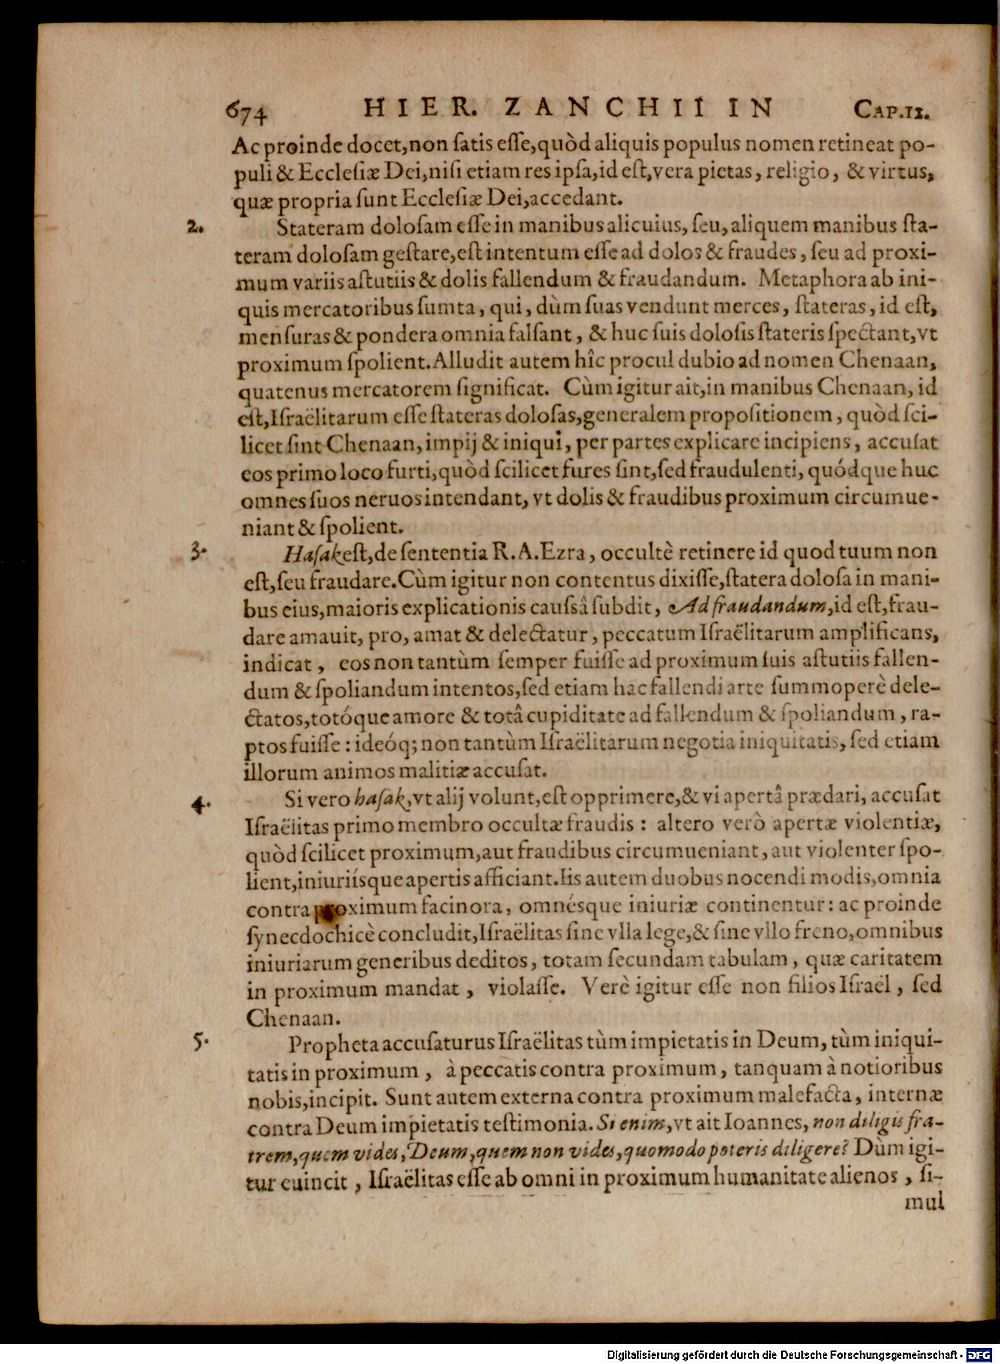 674 HIER. ZANCHII IN CAP.II.
Ac proinde docet, non ſatis eſſe, quòd aliquis populus nomen retineat po-
puli & Eccleſiæ Dei, niſi etiam res ipſa, id eſt, vera pietas, religio, & virtus,
quæ propria ſunt Eccleſiæ Dei, accedant.
2. Stateram doloſam eſſe in manibus alicuius, ſeu, aliquem manibus ſta-
teram doloſam geſtare, eſt intentum eſſe ad dolos & fraudes, ſeu ad proxi-
mum variis aſtutiis & dolis fallendum & fraudandum. Metaphora ab ini-
quis mercatoribus ſumta, qui, dùm ſuas vendunt merces, ſtateras, id eſt,
menſuras & pondera omnia falſant, & huc ſuis doloſis ſtateris ſpectant, vt
proximum ſpolient. Alludit autem hîc procul dubio ad nomen Chenaan,
quatenus mercatorem ſignificat. Cùm igitur ait, in manibus Chenaan, id
eſt, Iſraëlitarum eſſe ſtateras doloſas, generalem propoſitionem, quòd ſci-
licet ſint Chenaan, impij & iniqui, per partes explicare incipiens, accuſat
eos primo loco furti, quòd ſcilicet fures ſint, ſed fraudulenti, quódque huc
omnes ſuos neruos intendant, vt dolis & fraudibus proximum circumue-
niant & ſpolient.
3. Haſak eſt, de ſententia R. A. Ezra, occultè retinere id quod tuum non
eſt, ſeu fraudare. Cùm igitur non contentus dixiſſe, ſtatera doloſa in mani-
bus eius, maioris explicationis cauſsâ ſubdit, Ad fraudandum, id eſt, frau-
dare amauit, pro, amat & delectatur, peccatum Iſraëlitarum amplificans,
indicat, eos non tantùm ſemper fuiſſe ad proximum ſuis aſtutiis fallen-
dum & ſpoliandum intentos, ſed etiam hac fallendi arte ſummoperè dele-
ctatos, totóque amore & totâ cupiditate ad fallendum & ſpoliandum, ra-
ptos fuiſſe: ideóq; non tantùm Iſraëlitarum negotia iniquitatis, ſed etiam
illorum animos malitiæ accuſat.
4. Si vero haſak, vt alij volunt, eſt opprimere, & vi apertâ prædari, accuſat
Iſraëlitas primo membro occultæ fraudis: altero verò apertæ violentiæ,
quòd ſcilicet proximum, aut fraudibus circumueniant, aut violenter ſpo-
lient, iniuriísque apertis afficiant. Iis autem duobus nocendi modis, omnia
contra proximum facinora, omnésque iniuriæ continentur: ac proinde
ſynecdochicè concludit, Iſraëlitas ſine vlla lege, & ſine vllo freno, omnibus
iniuriarum generibus deditos, totam ſecundam tabulam, quæ caritatem
in proximum mandat, violaſſe. Verè igitur eſſe non filios Iſrael, ſed
Chenaan.
5. Propheta accuſaturus Iſraëlitas tùm impietatis in Deum, tùm iniqui-
tatis in proximum, à peccatis contra proximum, tanquam à notioribus
nobis, incipit. Sunt autem externa contra proximum malefacta, internæ
contra Deum impietatis teſtimonia. Si enim, vt ait Ioannes, non diligis fra-
trem, quem vides, Deum, quem non vides, quomodo poteris diligere? Dùm igi-
tur euincit, Iſraëlitas eſſe ab omni in proximum humanitate alienos, ſi-
mul
Digitalisierung gefördert durch die Deutsche Forschungsgemeinschaft - DFG